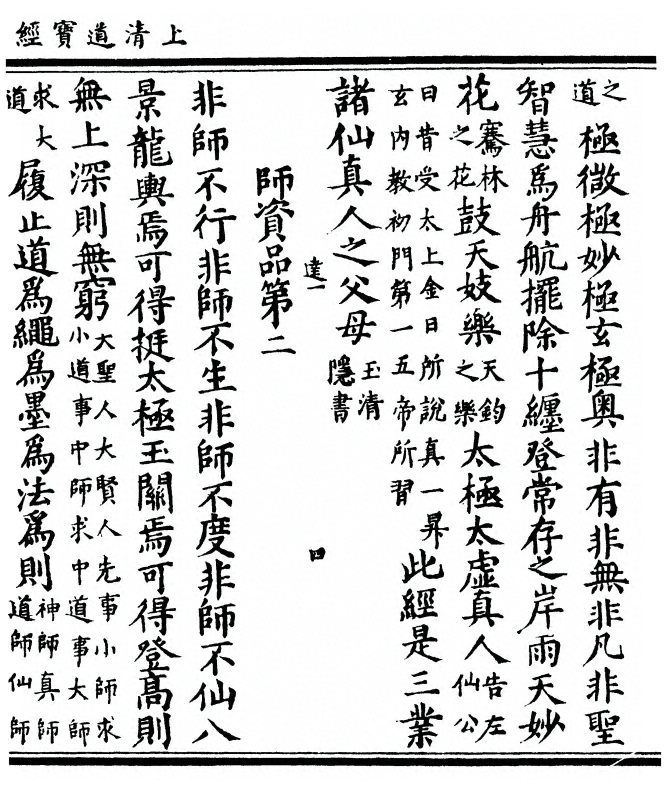 上清道寶經
之道極微極妙極玄極奥非有非無非凡非聖
智慧爲舟航擺除十纏登常存之岸雨天妙
花騫林之花鼓天妓樂天鈞之樂太極太虛真人告左仙公
曰昔受太上金日所說真一昇玄内教初門第一五帝所習此經是三業
諸仙真人之父母玉清隱書
達一 四
師資品第二
非師不行非師不生非師不度非師不仙八
景龍輿焉可得挺太極玉關焉可得登高則
無上深則無窮大聖人大賢人先事小師求小道事中師求中道事大師
求大道履止道爲繩爲墨爲法爲則神師真師道師仙師